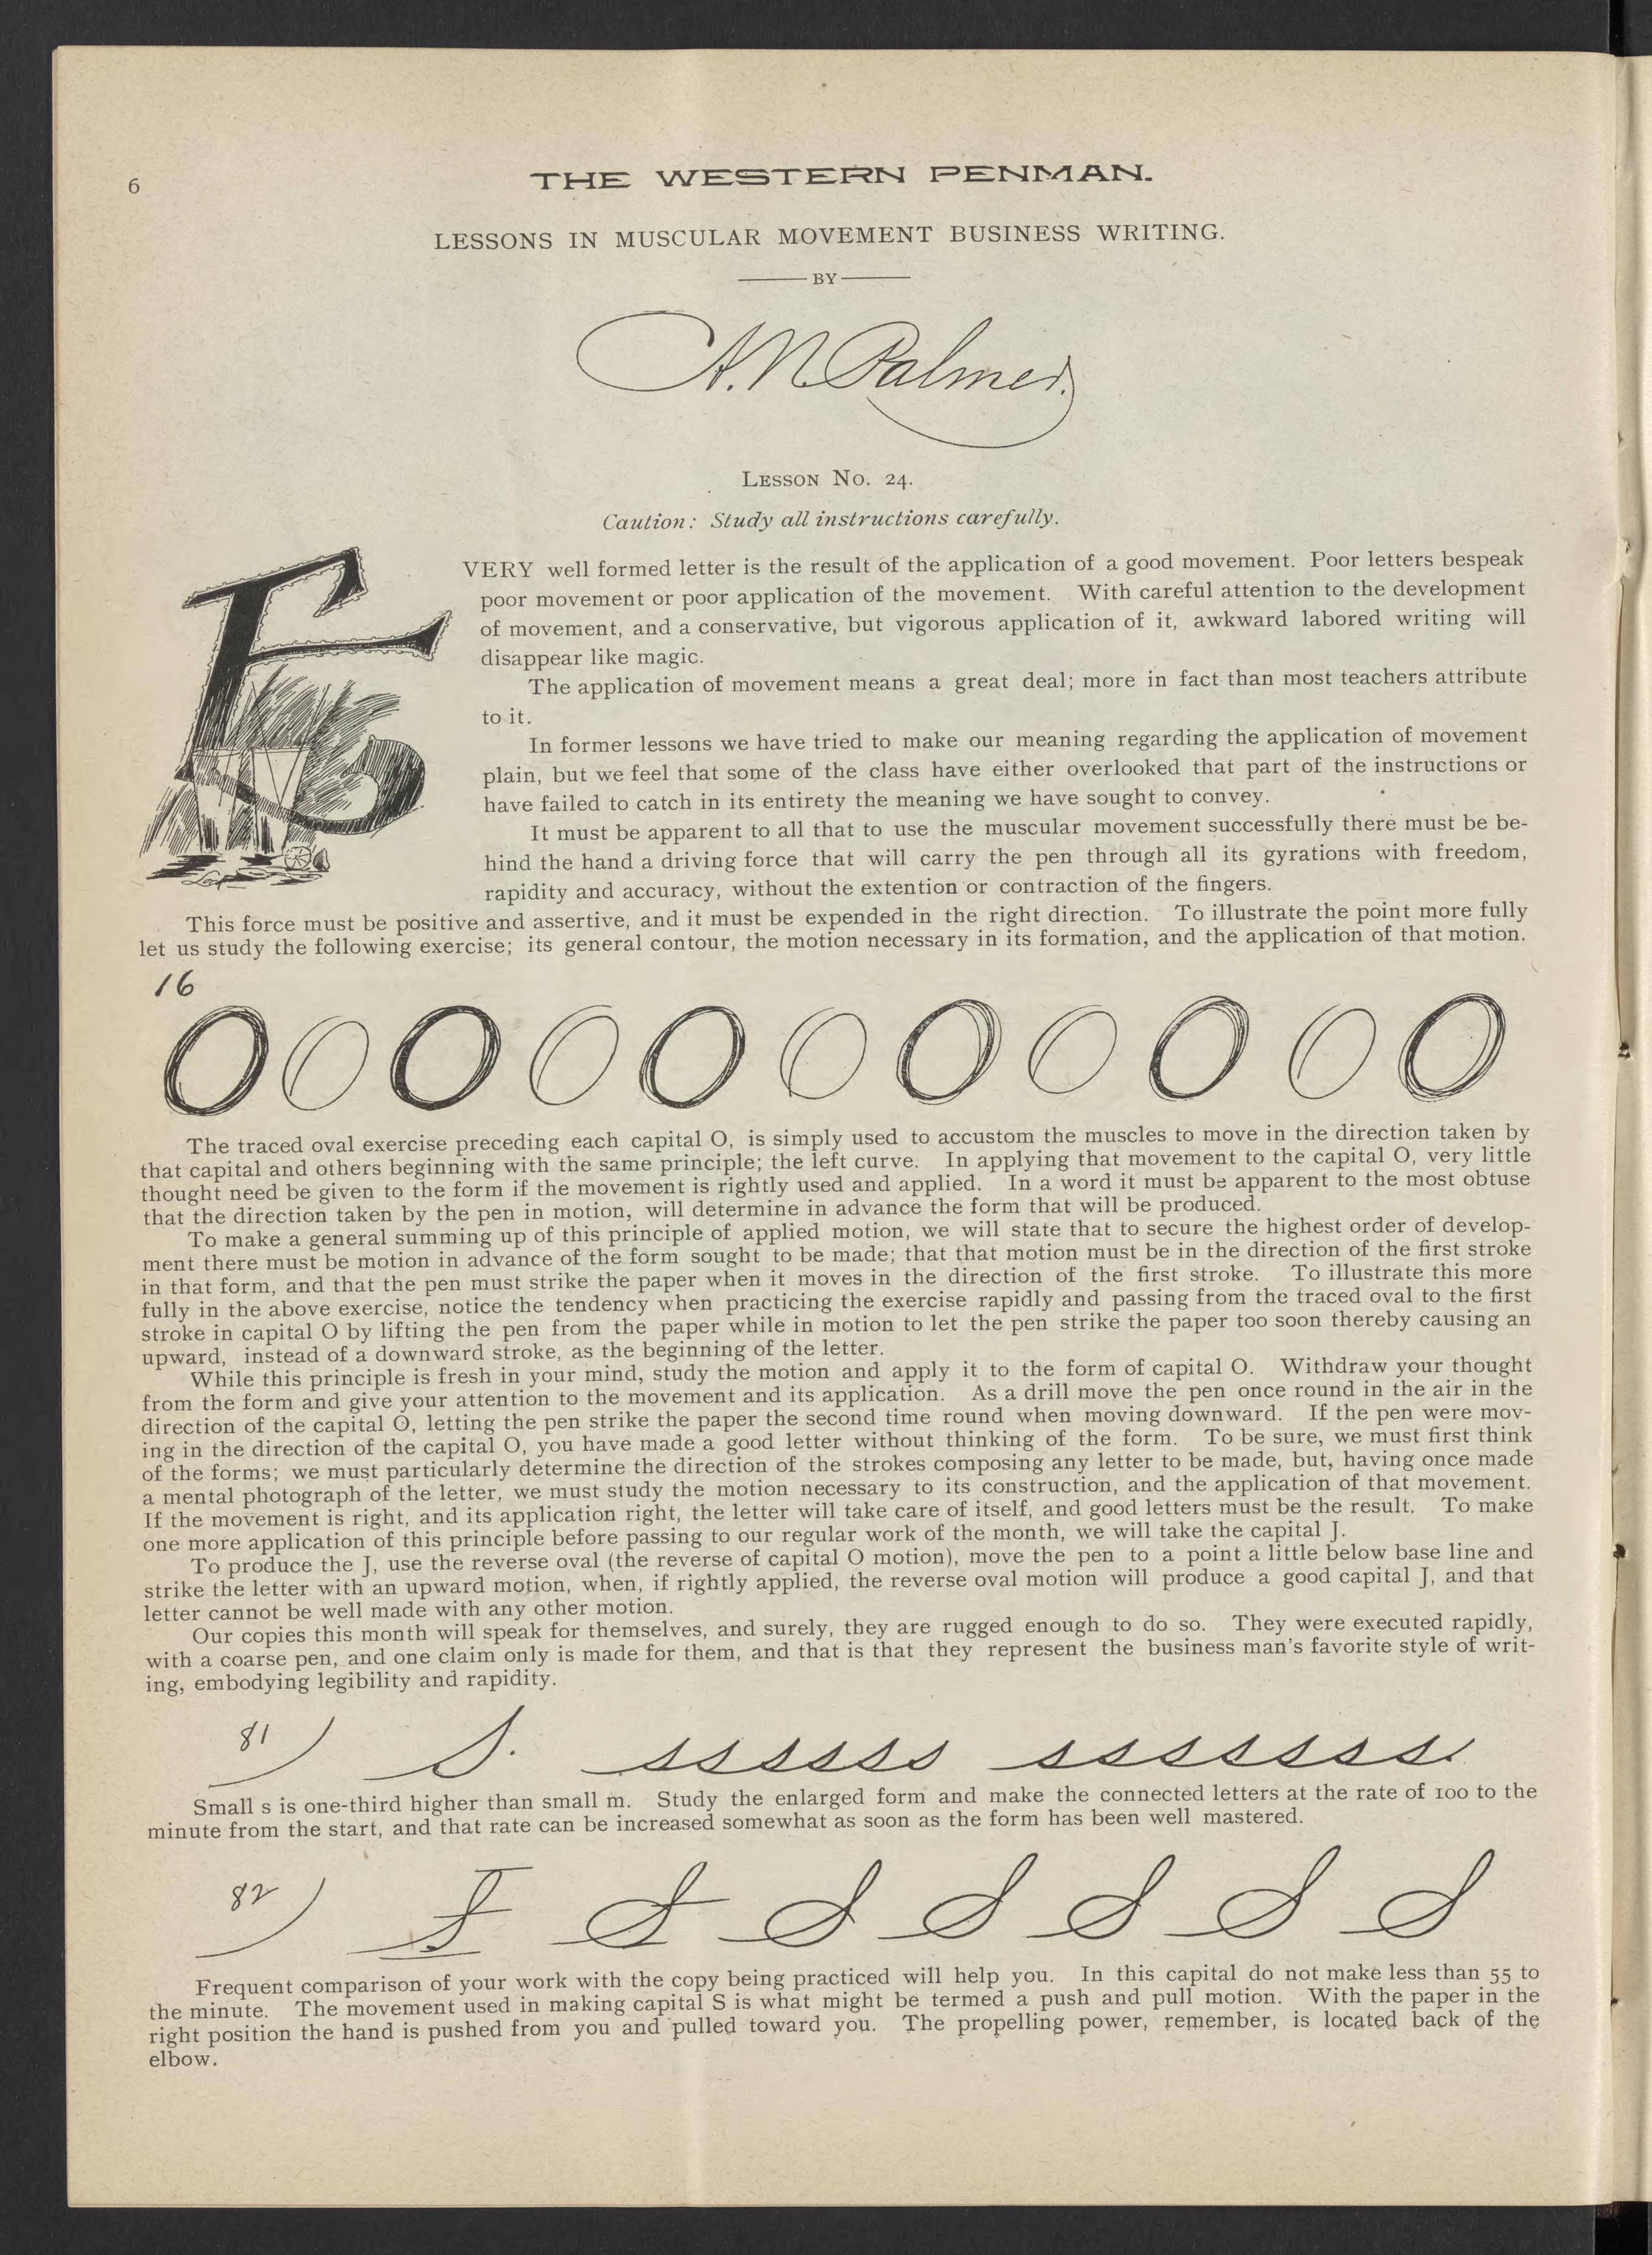 6
THE WESTERN PENMAN.
LESSONS IN MUSCULAR MOVEMENT BUSINESS WRITING.
BY
A. N. Palmer.
LESSON NO. 24.
Caution: Study all instructions carefully.
EVERY well formed letter is the result of the application of a good movement. Poor letters bespeak
poor movement or poor application of the movement. With careful attention to the development
of movement, and a conservative, but vigorous application of it, awkward labored writing will
disappear like magic.
The application of movement means a great deal; more in fact than most teachers attribute
to it.
In former lessons we have tried to make our meaning regarding the application of movement
plain, but we feel that some of the class have either overlooked that part of the instructions or
have failed to catch in its entirety the meaning we have sought to convey.
It must be apparent to all that to use the muscular movement successfully there must be be-
hind the hand a driving force that will carry the pen through all its gyrations with freedom,
rapidity and accuracy, without the extention or contraction of the fingers.
This force must be positive and assertive, and it must be expended in the right direction. To illustrate the point more fully
let us study the following exercise; its general contour, the motion necessary in its formation, and the application of that motion.
16
O O O O O O O O O O O
The traced oval exercise preceding each capital O, is simply used to accustom the muscles to move in the direction taken by
that capital and others beginning with the same principle; the left curve. In applying that movement to the capital O, very little
thought need be given to the form if the movement is rightly used and applied. In a word it must be apparent to the most obtuse
that the direction taken by the pen in motion, will determine in advance the form that will be produced.
To make a general summing up of this principle of applied motion, we will state that to secure the highest order of develop-
ment there must be motion in advance of the form sought to be made; that that motion must be in the direction of the first stroke
in that form, and that the pen must strike the paper when it moves in the direction of the first stroke. To illustrate this more
fully in the above exercise, notice the tendency when practicing the exercise rapidly and passing from the traced oval to the first
stroke in capital O by lifting the pen from the paper while in motion to let the pen strike the paper too soon thereby causing an
upward, instead of a downward stroke, as the beginning of the letter.
While this principle is fresh in your mind, study the motion and apply it to the form of capital O. Withdraw your thought
from the form and give your attention to the movement and its application. As a drill move the pen once round in the air in the
direction of the capital O, letting the pen strike the paper the second time round when moving downward. If the pen were mov-
ing in the direction of the capital O, you have made a good letter without thinking of the form. To be sure, we must first think
of the forms; we must particularly determine the direction of the strokes composing any letter to be made, but, having once made
a mental photograph of the letter, we must study the motion necessary to its construction, and the application of that movement.
If the movement is right, and its application right, the letter will take care of itself, and good letters must be the result. To make
one more application of this principle before passing to our regular work of the month, we will take the capital J.
To produce the J, use the reverse oval (the reverse of capital O motion), move the pen to a point a little below base line and
strike the letter with an upward motion, when, if rightly applied, the reverse oval motion will produce a good capital J, and that
letter cannot be well made with any other motion.
Our copies this month will speak for themselves, and surely, they are rugged enough to do so. They were executed rapidly,
with a coarse pen, and one claim only is made for them, and that is that they represent the business man's favorite style of writ-
ing, embodying legibility and rapidity.
81 s. ssssss ssssssss
Small s is one-third higher than small m. Study the enlarged form and make the connected letters at the rate of 100 to the
minute from the start, and that rate can be increased somewhat as soon as the form has been well mastered.
82 S S S S S S S
Frequent comparison of your work with the copy being practiced will help you. In this capital do not make less than 55 to
the minute. The movement used in making capital S is what might be termed a push and pull motion. With the paper in the
right position the hand is pushed from you and pulled toward you. The propelling power, remember, is located back of the
elbow.